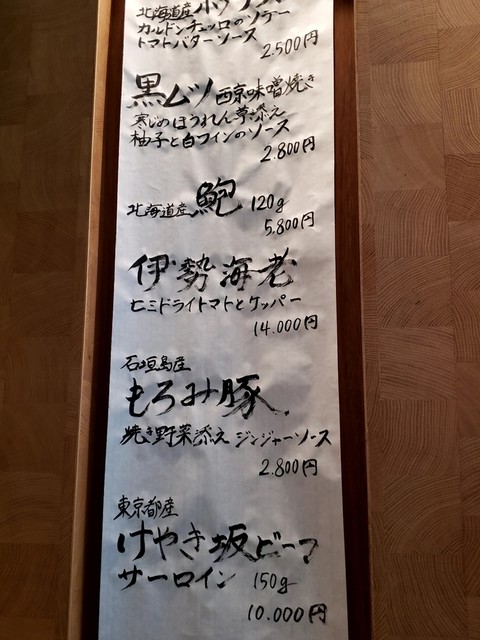 北海道産
カルドンチェッロのソテー
トマトバターソース
2.500円
黒ムツ 西京味噌焼き
寒じめほうれん草添え
柚子と白ワインのソース
2.800円
北海道産 鮑 120g
5.800円
伊勢海老
セミドライトマトとケッパー
14.000円
石垣島産
もろみ豚
焼き野菜添え ジンジャーソース
2.800円
東京都産
けやき坂ビーフ
サーロイン 150g
10.000円